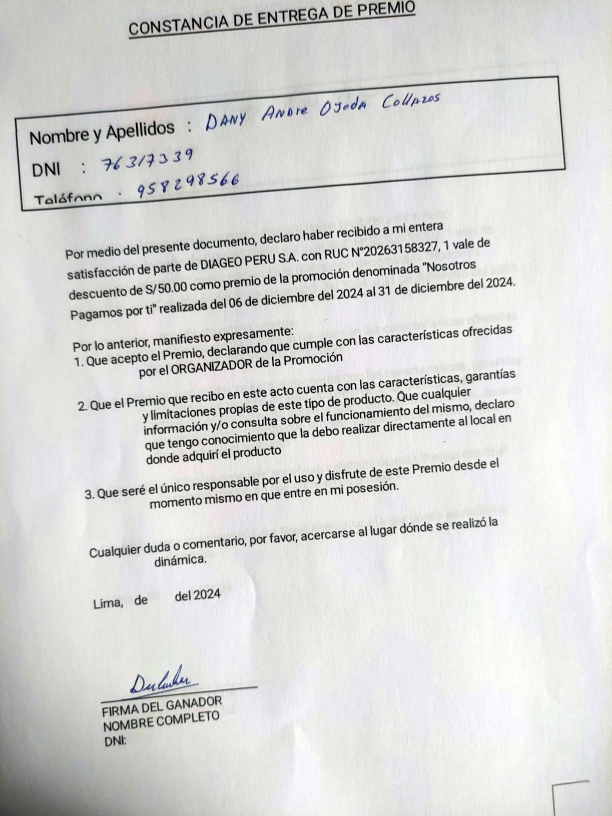 CONSTANCIA DE ENTREGA DE PREMIO
Nombre y Apellidos : DANY ANDRE OJEDA COLLAZOS
DNI : 76317339
Teléfono : 958298566
Por medio del presente documento, declaro haber recibido a mi entera
satisfacción de parte de DIAGEO PERU S.A. con RUC N°20263158327, 1 vale de
descuento de S/50.00 como premio de la promoción denominada "Nosotros
Pagamos por ti" realizada del 06 de diciembre del 2024 al 31 de diciembre del 2024.
Por lo anterior, manifiesto expresamente:
1. Que acepto el Premio, declarando que cumple con las características ofrecidas
por el ORGANIZADOR de la Promoción
2. Que el Premio que recibo en este acto cuenta con las características, garantías
y limitaciones propias de este tipo de producto. Que cualquier
información y/o consulta sobre el funcionamiento del mismo, declaro
que tengo conocimiento que la debo realizar directamente al local en
donde adquirí el producto
3. Que seré el único responsable por el uso y disfrute de este Premio desde el
momento mismo en que entre en mi posesión.
Cualquier duda o comentario, por favor, acercarse al lugar dónde se realizó la
dinámica.
Lima, de del 2024
FIRMA DEL GANADOR
NOMBRE COMPLETO
DNI: